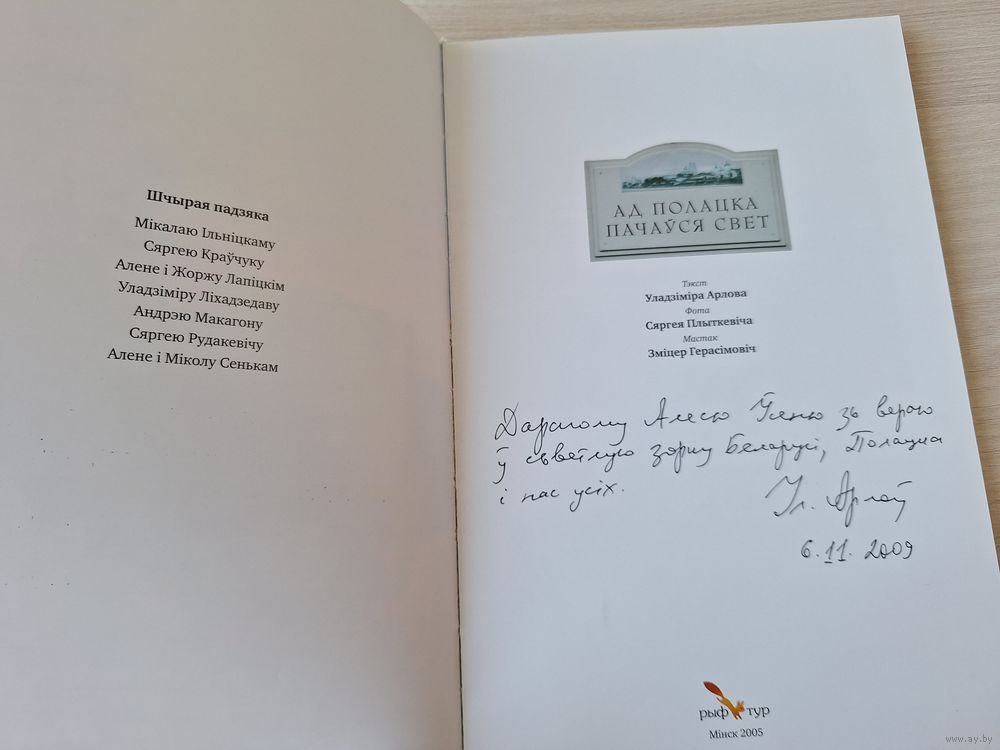 Шчырая падзяка
Мікалаю Ільніцкаму
Сяргею Краўчуку
Алене і Жоржу Лапіцкім
Уладзіміру Ліхадзедаву
Андрэю Макагону
Сяргею Рудакевічу
Алене і Міколу Сенькам
АД ПОЛАЦКА
ПАЧАЎСЯ СВЕТ
Тэкст
Уладзіміра Арлова
Фота
Сяргея Плыткевіча
Мастак
Зміцер Герасімовіч
Дарагому Алесю зь верою
ў сьветлую зорку Беларусі, Полацка
і нас усіх.
Ул. Арлоў
6.11.2009
рыф тур
Мінск 2005
www.ay.by